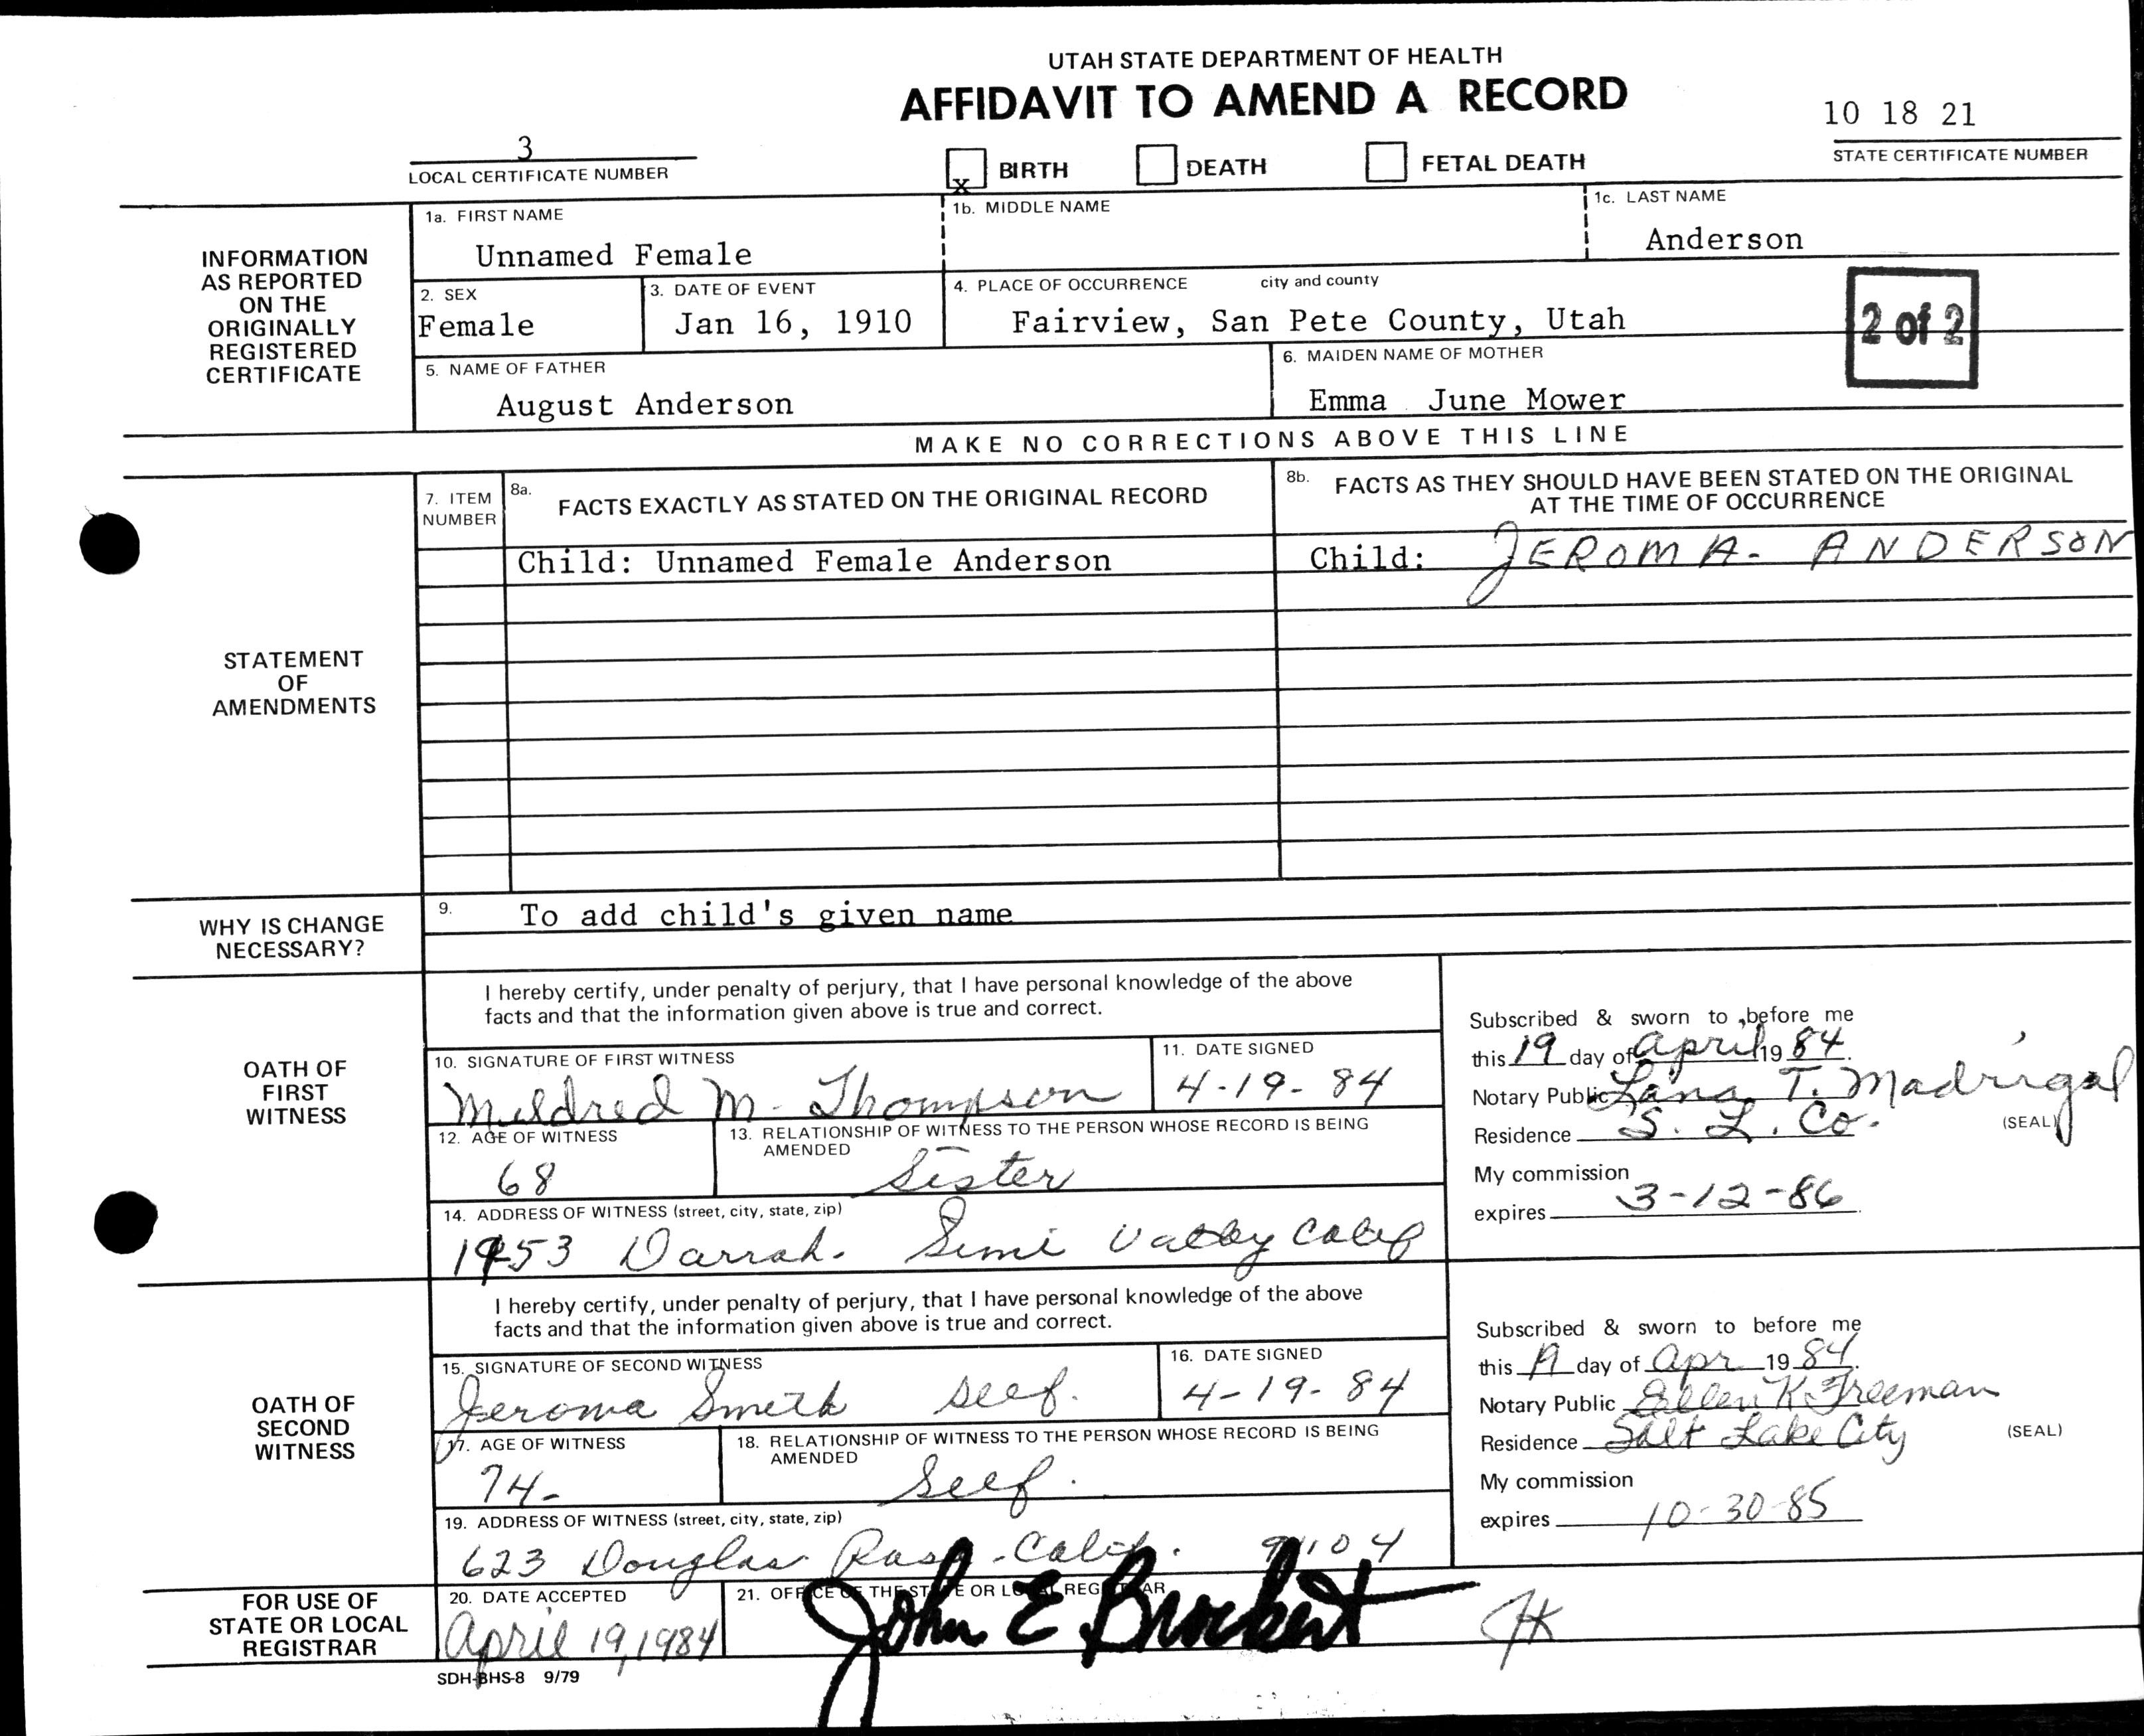 UTAH STATE DEPARTMENT OF HEALTH
AFFIDAVIT TO AMEND A RECORD
10 18 21
STATE CERTIFICATE NUMBER
3
LOCAL CERTIFICATE NUMBER
x BIRTH DEATH FETAL DEATH
INFORMATION
AS REPORTED
ON THE
ORIGINALLY
REGISTERED
CERTIFICATE
1a. FIRST NAME 1b. MIDDLE NAME 1c. LAST NAME
Unnamed Female Anderson
2. SEX 3. DATE OF EVENT 4. PLACE OF OCCURRENCE city and county
Female Jan 16, 1910 Fairview, San Pete County, Utah
2 of 2
5. NAME OF FATHER 6. MAIDEN NAME OF MOTHER
August Anderson Emma June Mower
MAKE NO CORRECTIONS ABOVE THIS LINE
STATEMENT
OF
AMENDMENTS
7. ITEM
NUMBER
8a. FACTS EXACTLY AS STATED ON THE ORIGINAL RECORD
8b. FACTS AS THEY SHOULD HAVE BEEN STATED ON THE ORIGINAL
AT THE TIME OF OCCURRENCE
Child: Unnamed Female Anderson Child: JEROMA- ANDERSON
WHY IS CHANGE
NECESSARY?
9. To add child's given name
OATH OF
FIRST
WITNESS
I hereby certify, under penalty of perjury, that I have personal knowledge of the above
facts and that the information given above is true and correct.
10. SIGNATURE OF FIRST WITNESS 11. DATE SIGNED
Mildred M. Thompson 4-19-84
12. AGE OF WITNESS 13. RELATIONSHIP OF WITNESS TO THE PERSON WHOSE RECORD IS BEING
AMENDED
68 Sister
14. ADDRESS OF WITNESS (street, city, state, zip)
1453 Darrah. Simi Valley Calif
Subscribed & sworn to before me
this 19 day of April 19 84.
Notary Public Lana T. Madrigal
Residence S. L. Co. (SEAL)
My commission
expires 3-12-86
OATH OF
SECOND
WITNESS
I hereby certify, under penalty of perjury, that I have personal knowledge of the above
facts and that the information given above is true and correct.
15. SIGNATURE OF SECOND WITNESS 16. DATE SIGNED
Jeroma Smith self. 4-19-84
17. AGE OF WITNESS 18. RELATIONSHIP OF WITNESS TO THE PERSON WHOSE RECORD IS BEING
AMENDED
74- Self.
19. ADDRESS OF WITNESS (street, city, state, zip)
623 Douglas Pasa-Calif. 91104
Subscribed & sworn to before me
this 19 day of Apr 19 84.
Notary Public Ellen K. Freeman
Residence Salt Lake City (SEAL)
My commission
expires 10-30-85
FOR USE OF
STATE OR LOCAL
REGISTRAR
20. DATE ACCEPTED 21. OFFICE OF THE STATE OR LOCAL REGISTRAR
April 19, 1984 John E Brockert JK
SDH-BHS-8 9/79